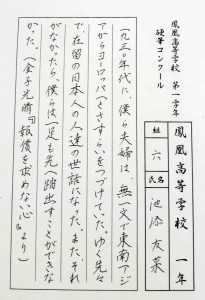 鳳凰高等学校 第一学年
硬筆コンクール
鳳凰高等学校 一年
組 六 氏名 池添友菜
一九三〇年代に、僕ら夫婦は、無一文で東南アジ
アからヨーロッパへとさすらいをつづけていた。ゆく先々
で、在留の日本人の人達の世話になった。またそれ
がなかったら、僕らは一足も先へ踏出すことができな
かった。(金子光晴『報償を求めない心』より)